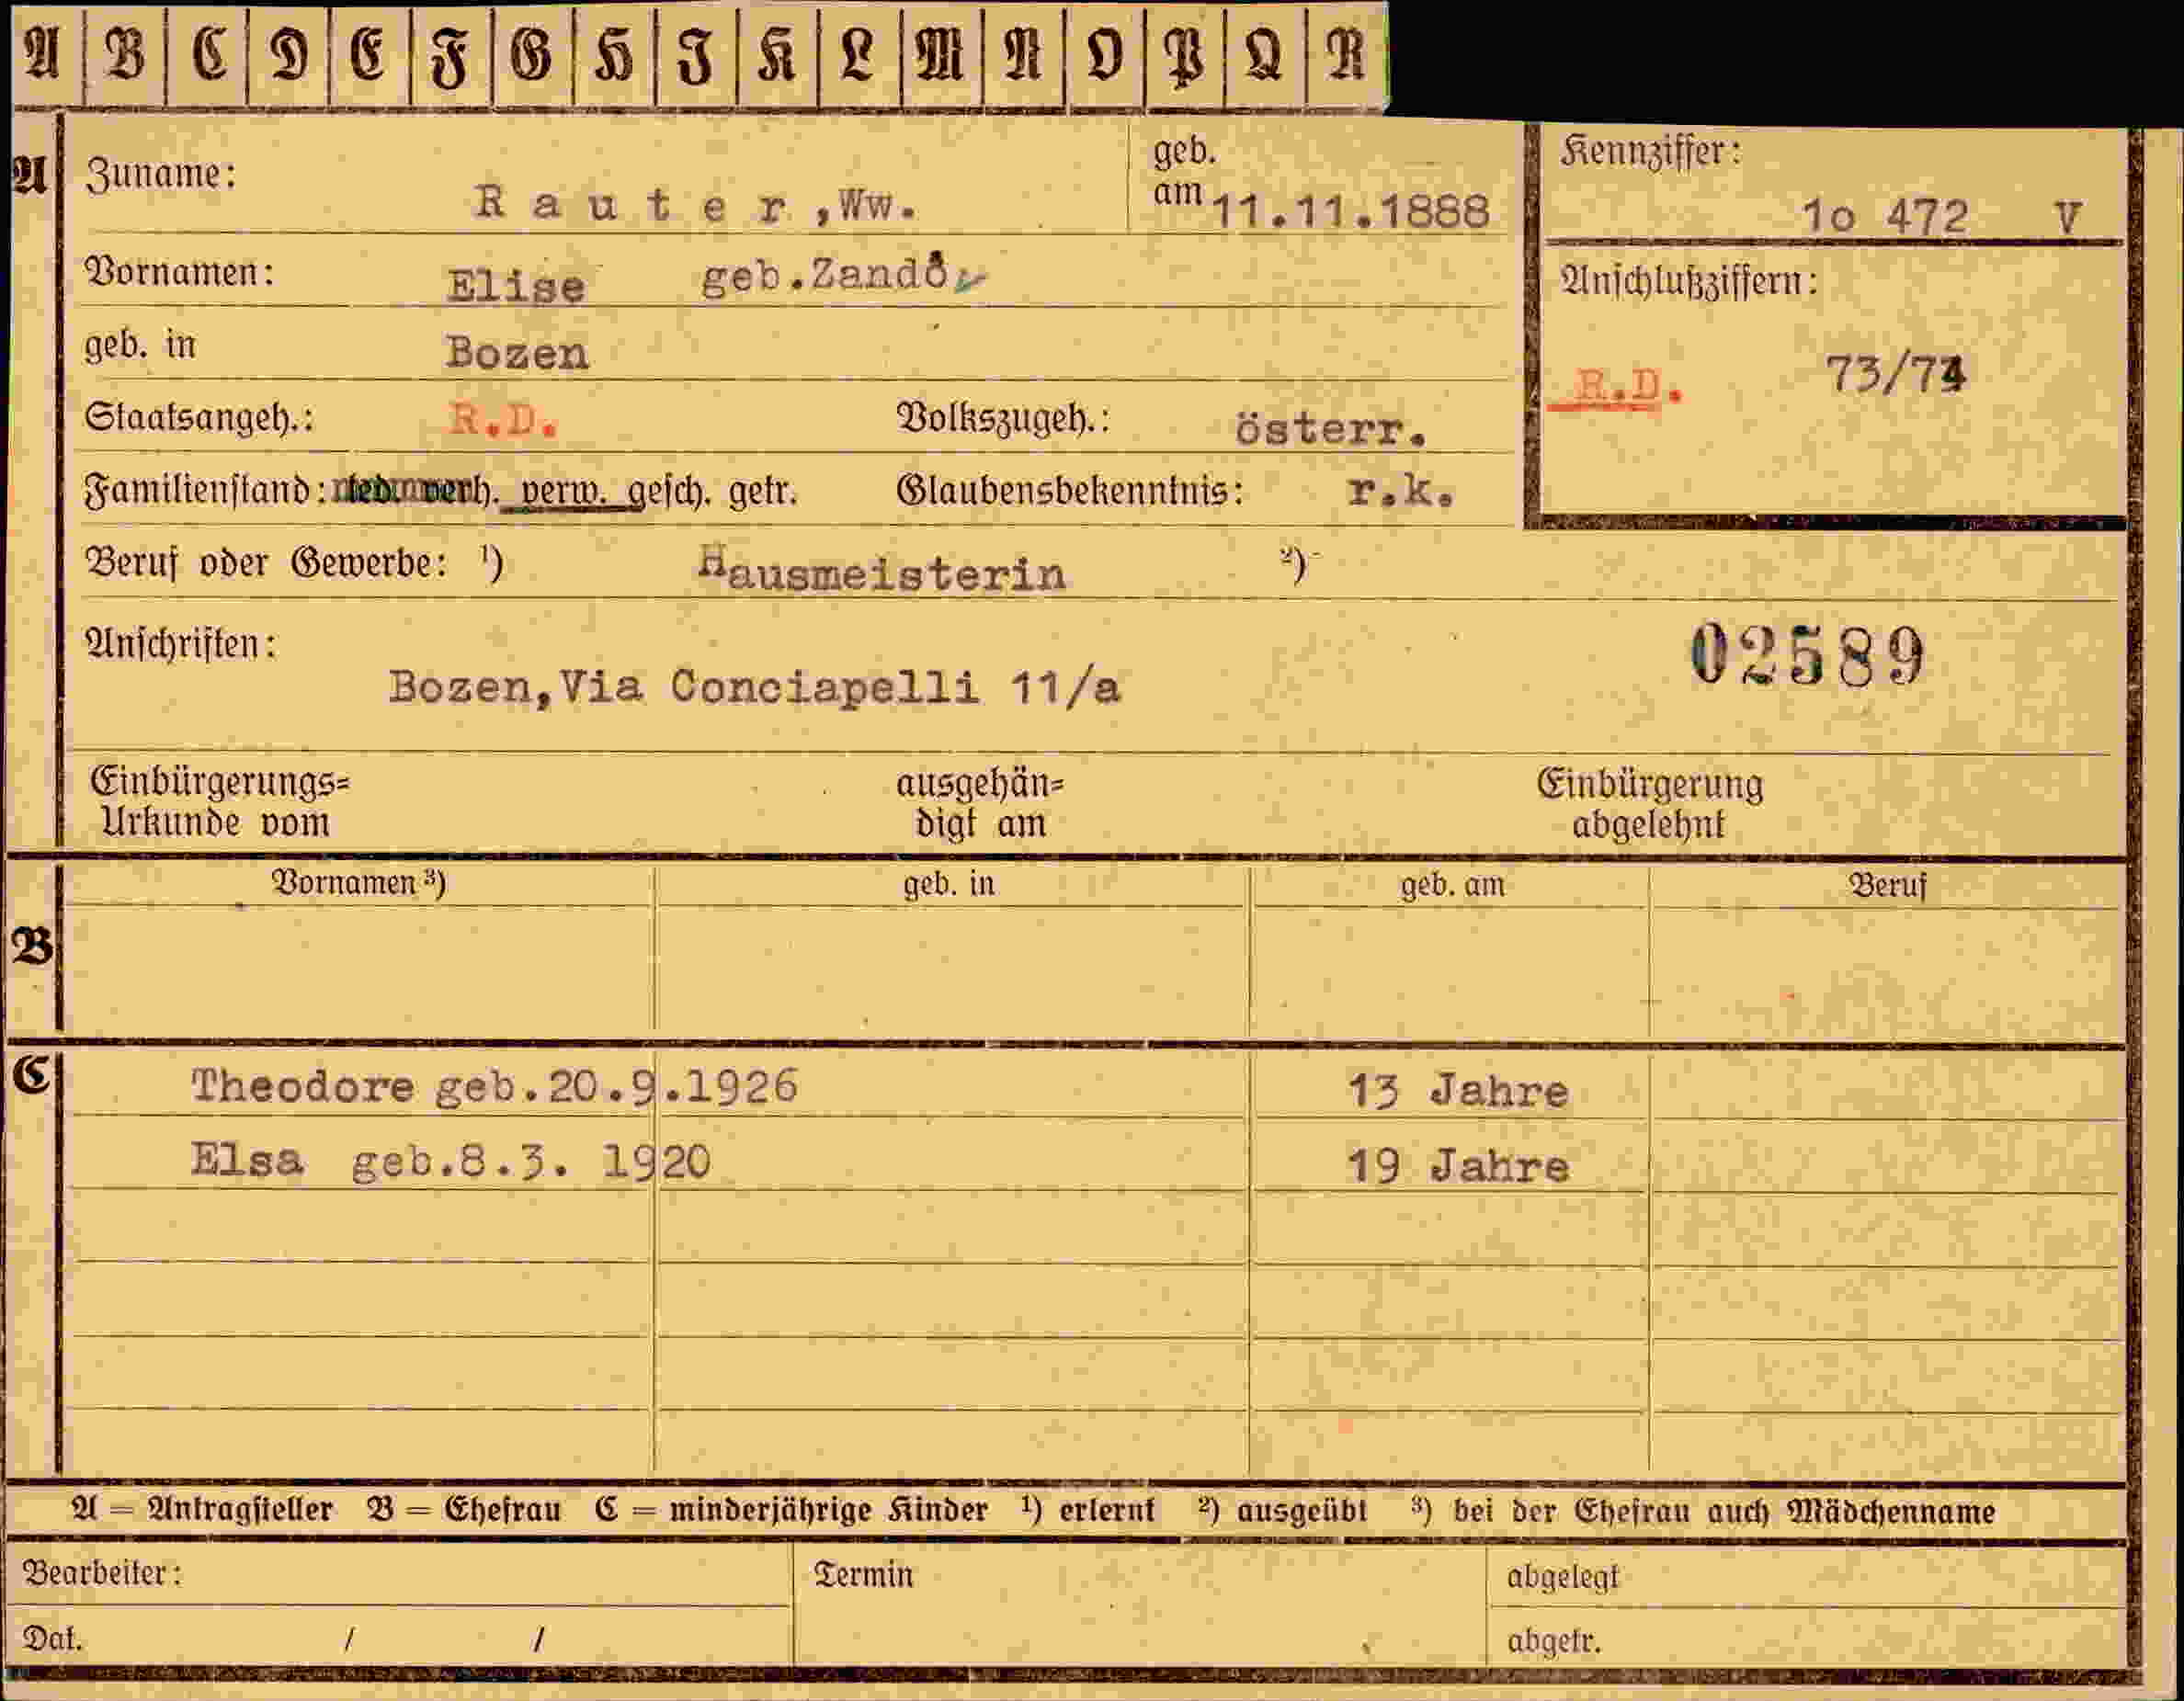 A B C D E F G H J K L M N O P Q R
A Zuname: Rauter,Ww. geb. am 11.11.1888
Kennziffer: 1o 472 V
Vornamen: Elise geb.
Anschlußziffern:
geb. in Bozen
R.D. 73/74
Staatsangeh.: R.D. Volkszugeh.: österr.
Familienstand: verh. verw. gesch. getr. Glaubensbekenntnis: r.k.
Beruf oder Gewerbe: ¹) Hausmeisterin ²)-
Anschriften: 02589
Bozen,Via Conciapelli 11/a
Einbürgerungs= ausgehän= Einbürgerung
Urkunde vom digt am abgelehnt
Vornamen ³) geb. in geb. am Beruf
B
C Theodore geb.20.9.1926 13 Jahre
Elsa geb.8.3. 1920 19 Jahre
A = Antragsteller B = Ehefrau C = minderjährige Kinder ¹) erlernt ²) ausgeübt ³) bei der Ehefrau auch Mädchenname
Bearbeiter: Termin abgelegt
Dat. / / abgetr.